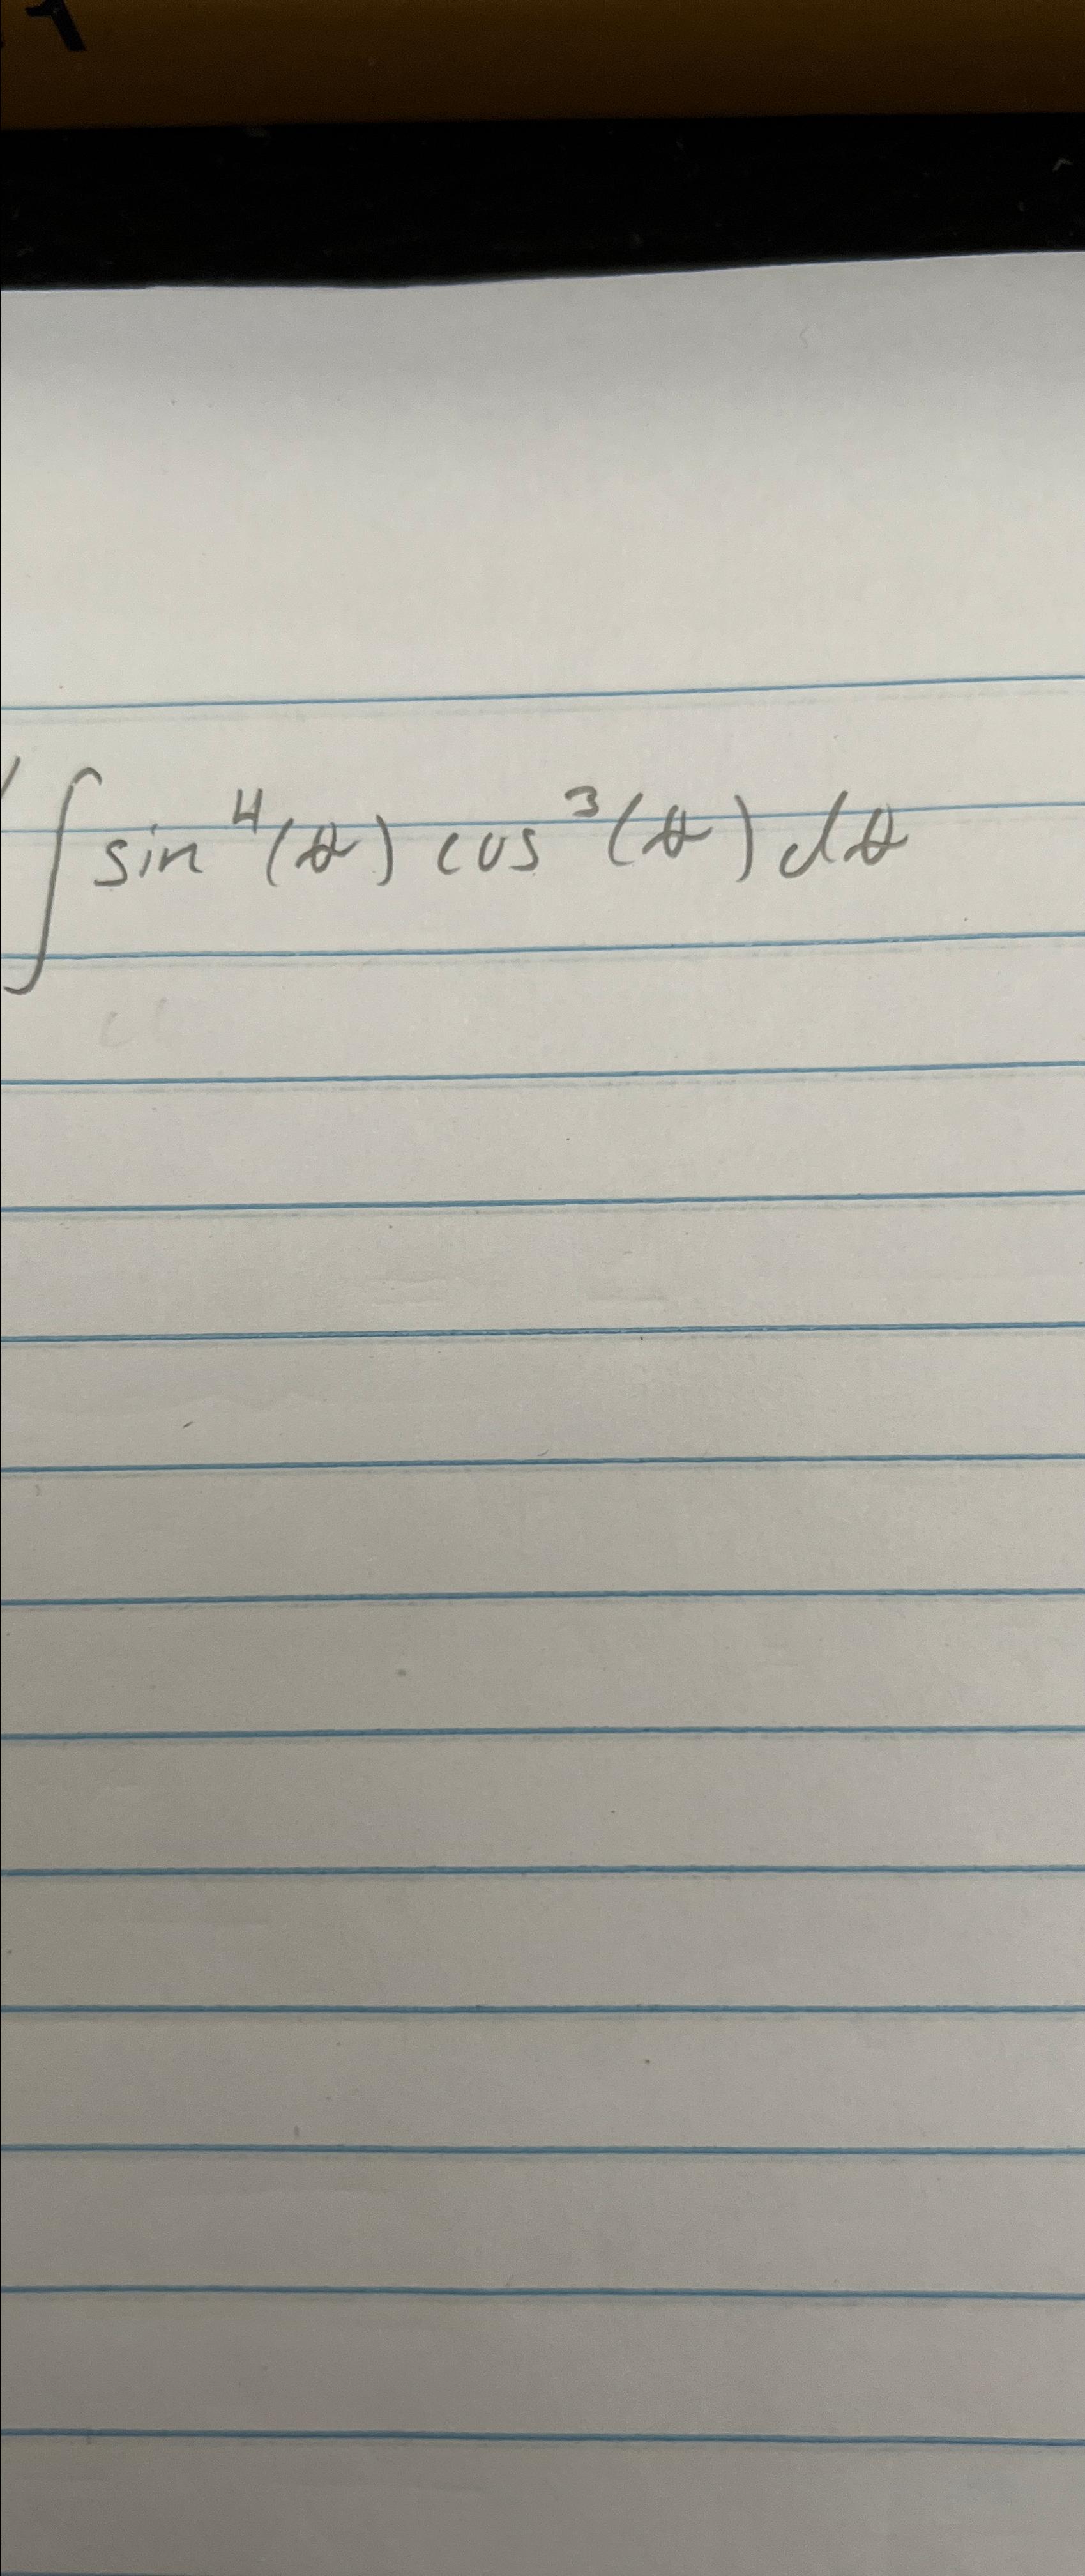 ∫ sin⁴(θ) cos³(θ) dθ